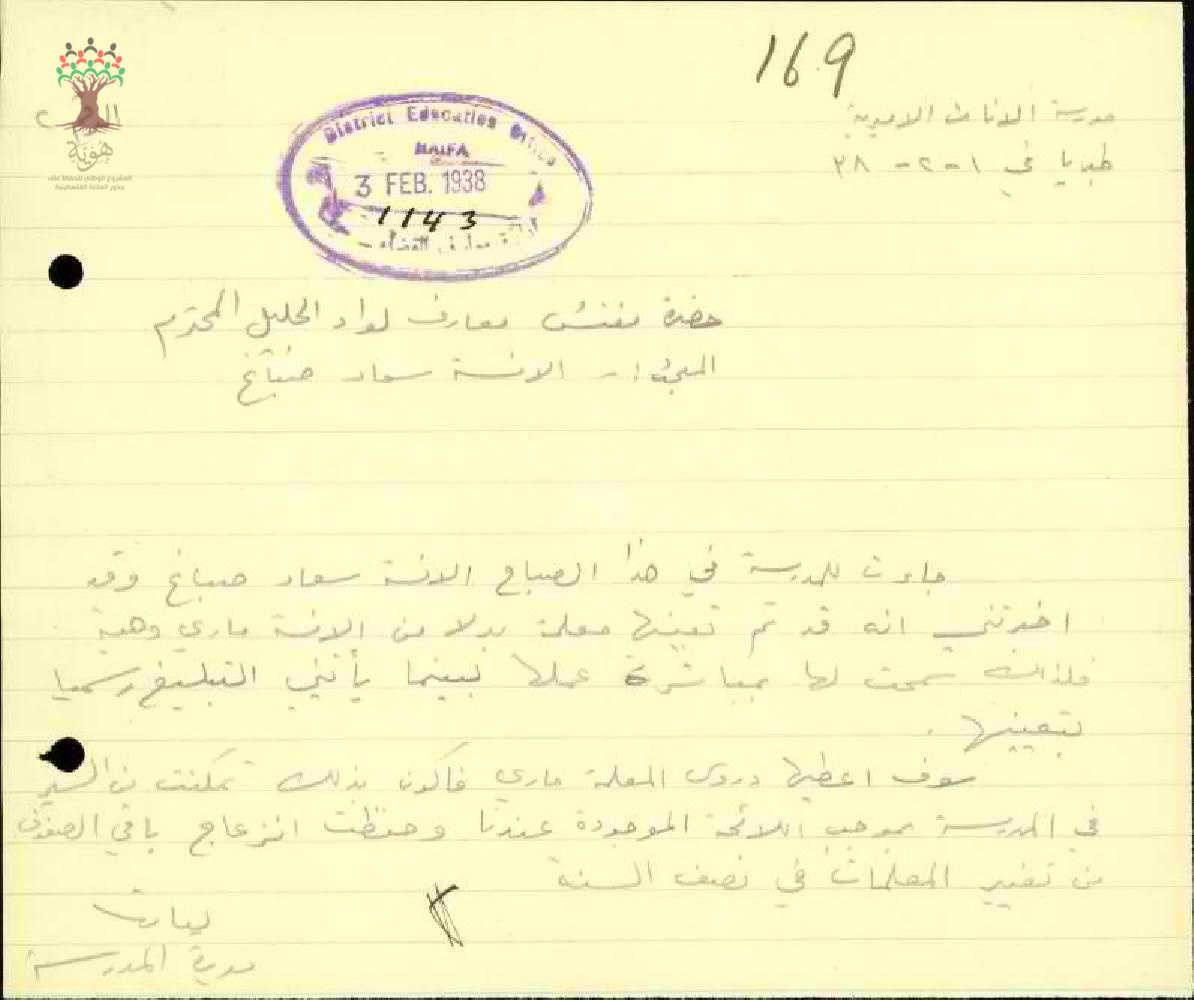 169
مدرسة الاناث الاميرية
طبريا في ١ - ٢ - ٣٨
هوية
المشروع الوطني للحفاظ على
جذور العائلة الفلسطينية
District Education Office
HAIFA
3 FEB. 1938
1143
حضرة مفتش معارف لواء الجليل المحترم
المبحث :- الانسة سعاد صباغ
جاءت للمدرسة في هذا الصباح الانسة سعاد صباغ وقد
اخبرتني انه قد تم تعيينها معلمة بدلا من الانسة ماري وهبة
فلذلك سمحت لها بمباشرة عملها لبينما يأتيني التبليغ رسميا
بتعيينها .
سوف اعطيها دروس المعلمة ماري فاكون بذلك تمكنت من السير
في المدرسة بموجب اللائحة الموجودة عندنا وحفظت انزعاج باقي الصفوف
من تغيير المعلمات في نصف السنة
مديرة المدرسة